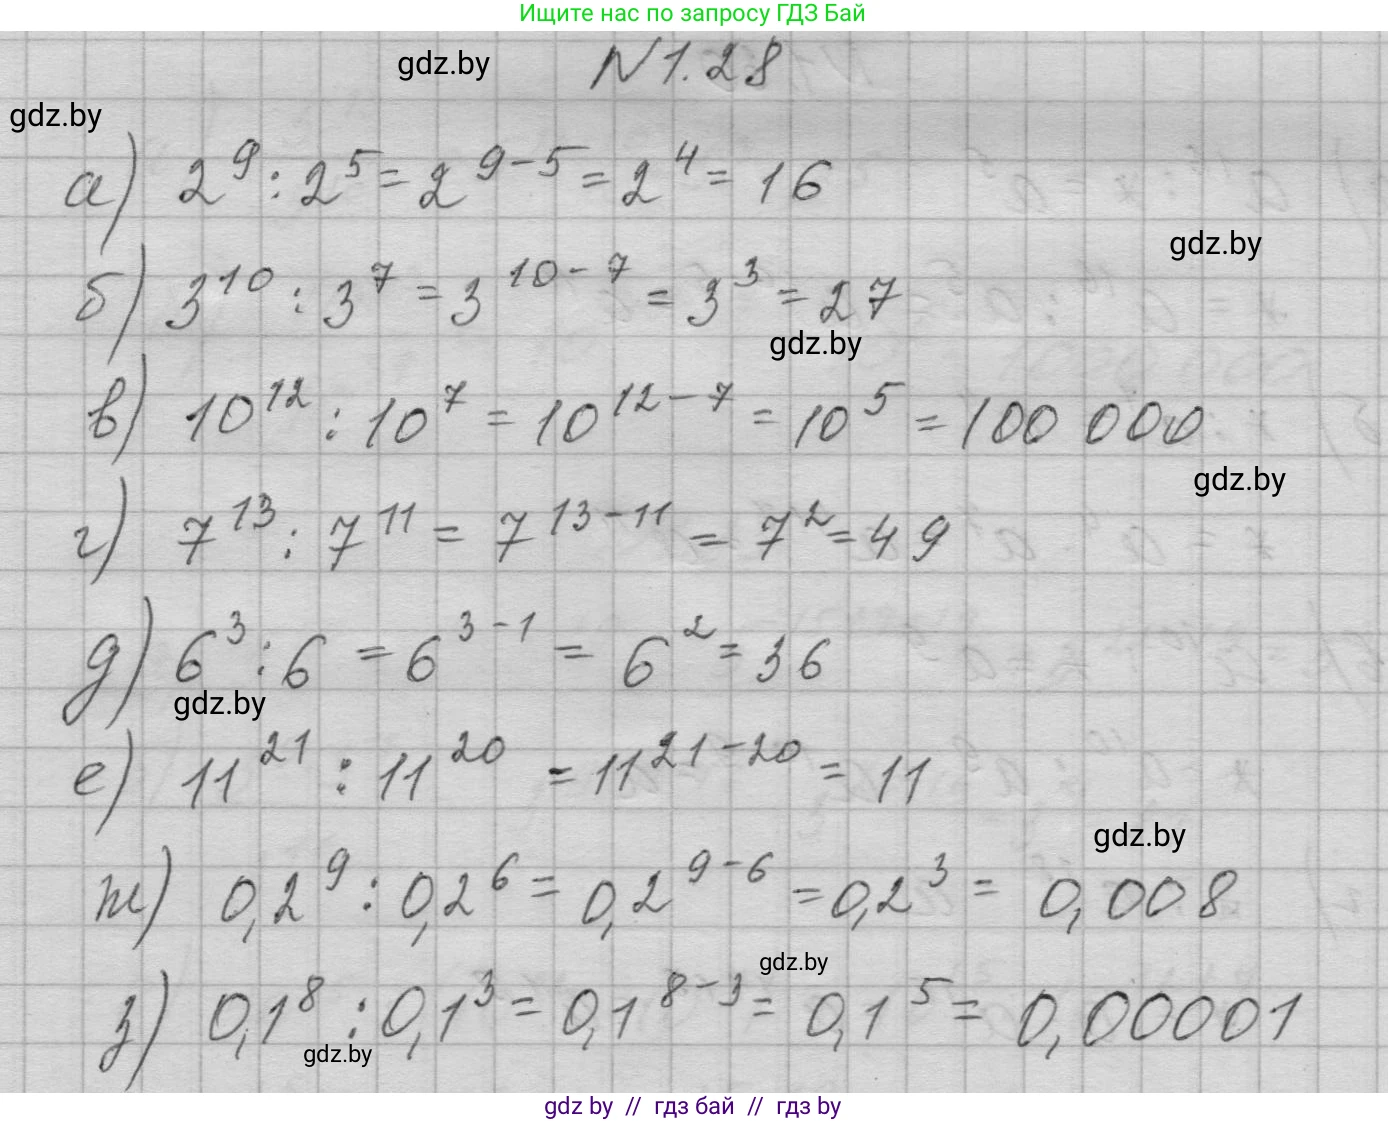 Ищите нас по запросу ГДЗ Бай
gdz.by
N 1.28
gdz.by
а) 2^9 : 2^5 = 2^{9-5} = 2^4 = 16
gdz.by
б) 3^{10} : 3^7 = 3^{10-7} = 3^3 = 27
gdz.by
в) 10^{12} : 10^7 = 10^{12-7} = 10^5 = 100 000
gdz.by
г) 7^{13} : 7^{11} = 7^{13-11} = 7^2 = 49
д) 6^3 : 6 = 6^{3-1} = 6^2 = 36
gdz.by
е) 11^{21} : 11^{20} = 11^{21-20} = 11
gdz.by
ж) 0,2^9 : 0,2^6 = 0,2^{9-6} = 0,2^3 = 0,008
gdz.by
з) 0,1^8 : 0,1^3 = 0,1^{8-3} = 0,1^5 = 0,00001
gdz.by
gdz by // гдз бай // гдз by